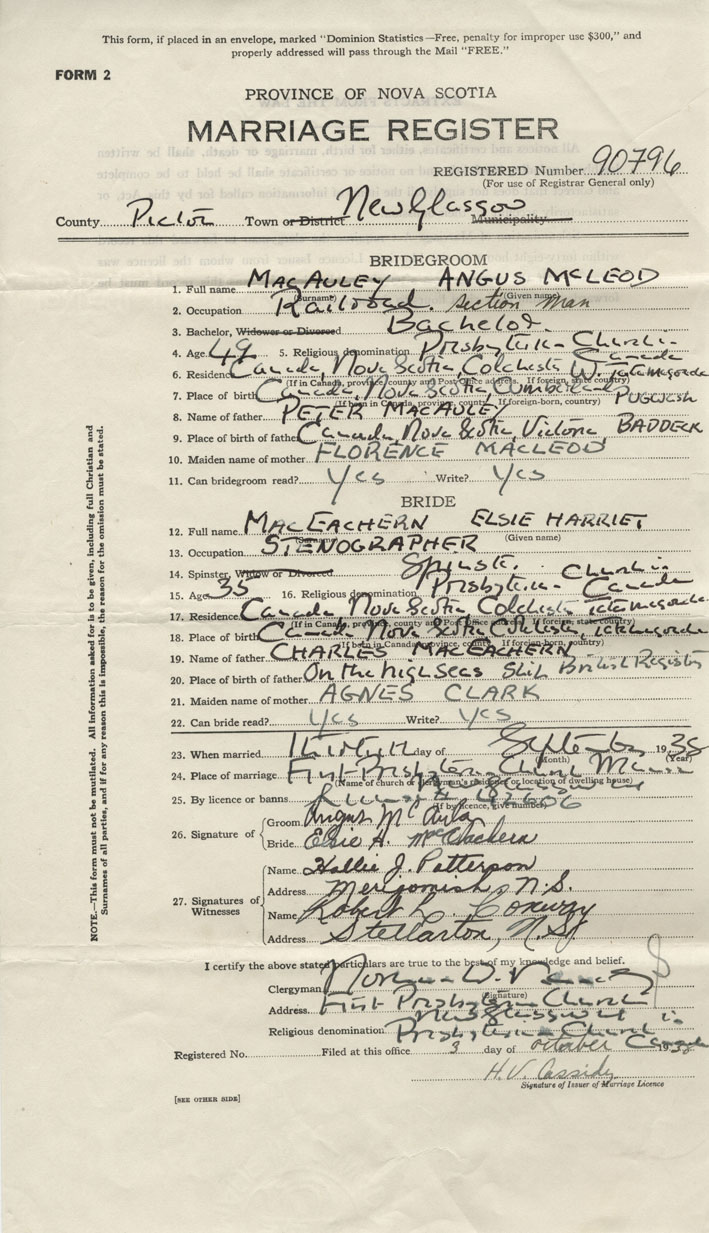 This form, if placed in an envelope, marked "Dominion Statistics—Free, penalty for improper use $300," and
properly addressed will pass through the Mail "FREE."
FORM 2
PROVINCE OF NOVA SCOTIA
MARRIAGE REGISTER
REGISTERED Number 90796
(For use of Registrar General only)
County Pictou Town or District New Glasgow Municipality
BRIDEGROOM
1. Full name MACAULEY ANGUS MCLEOD
(Surname) (Given name)
2. Occupation Railroad section man
3. Bachelor, Widower or Divorced Bachelor
4. Age 49 5. Religious denomination Presbyterian Church in Canada
6. Residence Canada, Nova Scotia, Colchester W. Tatamagouche
(If in Canada, province, county and Post Office address. If foreign, state country)
7. Place of birth Canada, Nova Scotia, Cumberland, PUGWASH
(If born in Canada, province, county. If foreign-born, country)
8. Name of father PETER MACAULEY
9. Place of birth of father Canada, Nova Scotia, Victoria, BADDECK
10. Maiden name of mother FLORENCE MACLEOD
11. Can bridegroom read? Yes Write? Yes
BRIDE
12. Full name MACEACHERN ELSIE HARRIET
(Given name)
13. Occupation STENOGRAPHER
14. Spinster, Widow or Divorced Spinster
15. Age 35 16. Religious denomination Presbyterian Church in Canada
17. Residence Canada Nova Scotia, Colchester Tatamagouche
(If in Canada, province, county and Post Office address. If foreign state country)
18. Place of birth Canada Nova Scotia Colchester, Tatamagouche
(If born in Canada, province, county. If foreign-born, country)
19. Name of father CHARLES MACEACHERN
20. Place of birth of father On the high seas Ship British Registry
21. Maiden name of mother AGNES CLARK
22. Can bride read? Yes Write? Yes
23. When married Thirtieth day of September 1938
(Month) (Year)
24. Place of marriage First Presbyterian Church Manse
(Name of church or clergyman's residence or location of dwelling house)
25. By licence or banns License
(If by licence, give number)
26. Signature of Groom Angus McAula
Bride Elsie H. MacEachern
27. Signatures of Witnesses Name Hallie J. Patterson
Address Merigomish, N.S.
Name Robert L. Conway
Address Stellarton, N.S.
I certify the above stated particulars are true to the best of my knowledge and belief.
Clergyman Norman D.
(Signature)
Address First Presbyterian Church
New Glasgow
Religious denomination Presbyterian Church in Canada
Registered No. Filed at this office 3 day of October 1938
H.V. Cassidy
Signature of Issuer of Marriage Licence
[SEE OTHER SIDE]
NOTE.—This form must not be mutilated. All information asked for is to be given, including full Christian and
Surnames of all parties, and if for any reason this is impossible, the reason for the omission must be stated.